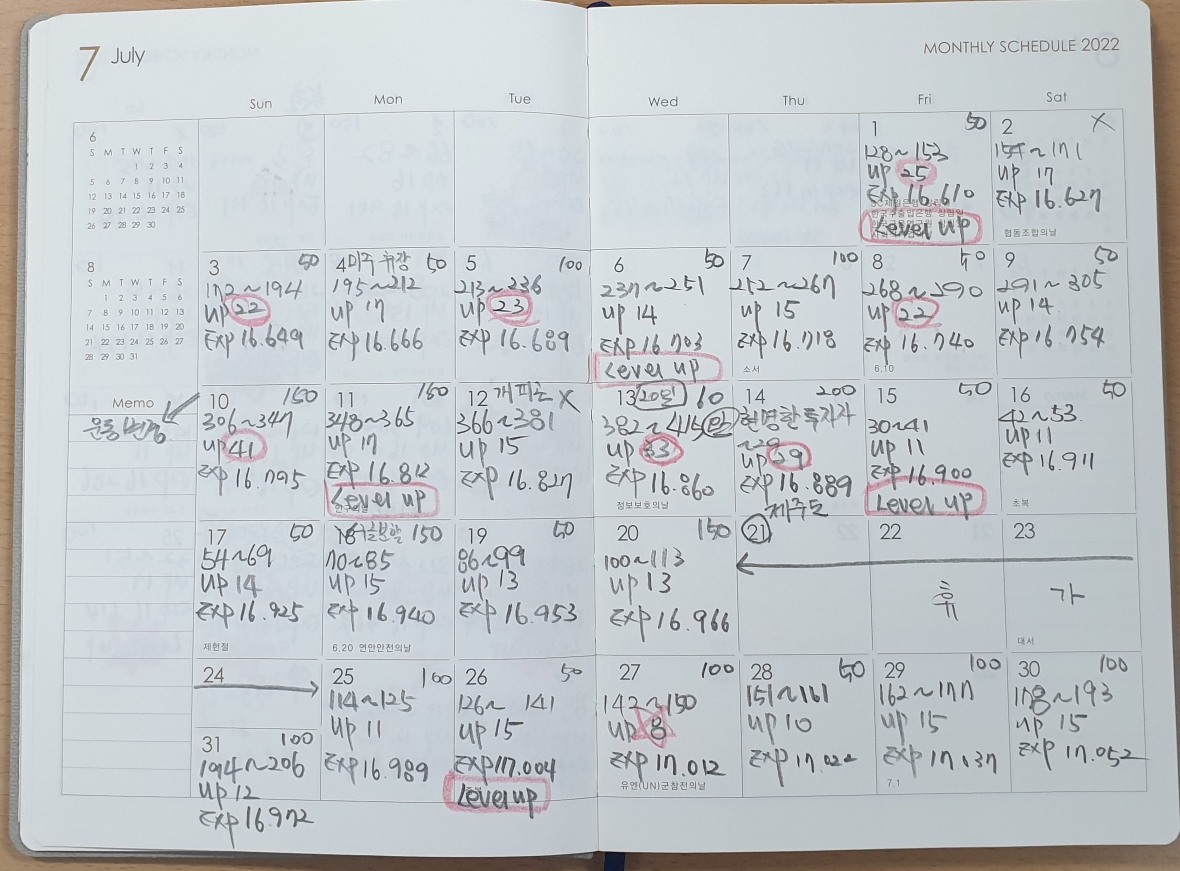 7 July
MONTHLY SCHEDULE 2022
Sun Mon Tue Wed Thu Fri Sat
6
S M T W T F S
1 2 3 4
5 6 7 8 9 10 11
12 13 14 15 16 17 18
19 20 21 22 23 24 25
26 27 28 29 30
1 50
128~153
UP 25
EXP 16.610
Level up
2 X
154~171
UP 17
EXP 16.627
협동조합의날
8
S M T W T F S
1 2 3 4 5 6
7 8 9 10 11 12 13
14 15 16 17 18 19 20
21 22 23 24 25 26 27
28 29 30 31
3 50
172~194
UP 22
EXP 16.649
4 미주 휴장 50
195~212
UP 17
EXP 16.666
5 100
213~236
UP 23
EXP 16.689
6 50
237~251
UP 14
EXP 16.703
Level up
7 100
252~267
UP 15
EXP 16.718
소서
8 50
268~290
UP 22
EXP 16.740
6.10
9 50
291~305
UP 14
EXP 16.754
Memo
운동
10 150
306~347
UP 41
EXP 16.795
11 150
348~365
UP 17
EXP 16.812
Level up
12 개피곤 X
366~381
UP 15
EXP 16.827
13 20일 60
382~415 완
UP 33
EXP 16.860
정보보호의날
14 200
현명한 투자자
~29
UP 29
EXP 16.889
제주도
15 50
30~41
UP 11
EXP 16.900
Level up
16 50
42~53
UP 11
EXP 16.911
초복
17 50
54~69
UP 14
EXP 16.925
제헌절
18 150
70~85
UP 15
EXP 16.940
6.20 연안안전의날
19 50
86~99
UP 13
EXP 16.953
20 150
100~113
UP 13
EXP 16.966
21
22
휴
23
가
대서
24
25 100
114~125
UP 11
EXP 16.989
26 50
126~141
UP 15
EXP 17.004
Level up
27 100
142~150
UP 8
EXP 17.012
유엔(UN)군참전의날
28 50
151~161
UP 10
EXP 17.022
29 100
162~177
UP 15
EXP 17.037
7.1
30 100
178~193
UP 15
EXP 17.052
31 100
194~206
UP 12
EXP 16.972